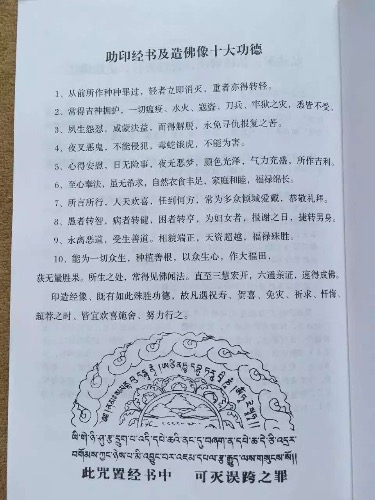 助印经书及造佛像十大功德
1、从前所作种种罪过，轻者立即消灭，重者亦得转轻。
2、常得吉神拥护，一切瘟疫、水火、寇盗、刀兵、牢狱之灾，悉皆不受。
3、夙生怨怼，咸蒙法益，而得解脱，永免寻仇报复之苦。
4、夜叉恶鬼，不能侵犯，毒蛇饿虎，不能为害。
5、心得安慰，日无险事，夜无恶梦，颜色光泽，气力充盛，所作吉利。
6、至心奉法，虽无希求，自然衣食丰足、家庭和睦，福禄绵长。
7、所言所行，人天欢喜，任到何方，常为多众倾城爱戴，恭敬礼拜。
8、愚者转智，病者转健，困者转亨，为妇女者，报谢之日，捷转男身。
9、永离恶道，受生善道。相貌端正，天资超越，福禄殊胜。
10、能为一切众生，种植善根，以众生心，作大福田，
获无量胜果。所生之处，常得见佛闻法。直至三慧宏开，六通亲证，速得成佛。
印造经像、既有如此殊胜功德，故凡遇祝寿、贺喜、免灾、祈求、忏悔、
超荐之时、皆宜欢喜施舍、努力行之。
此咒置经书中 可灭误跨之罪